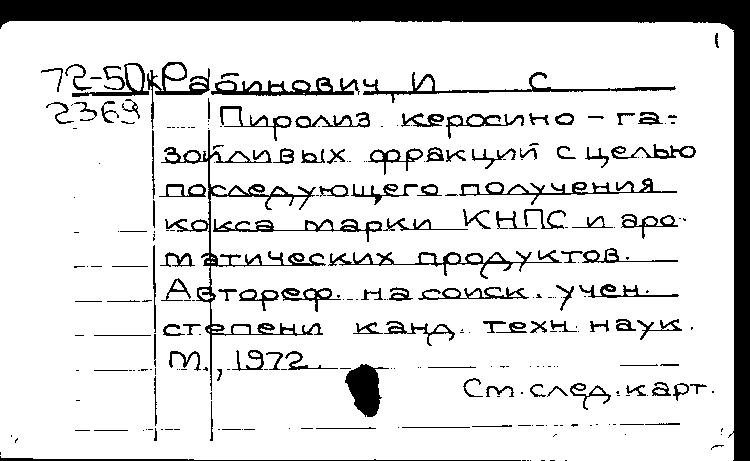 1
72-50к Рабинович, И С
2369 Пиролиз керосино-га-
зойливых фракций с целью
последующего получения
кокса марки КНПС и аро-
матических продуктов.
Автореф. на соиск. учен.
степени канд. техн. наук.
М., 1972.
См. след. карт.